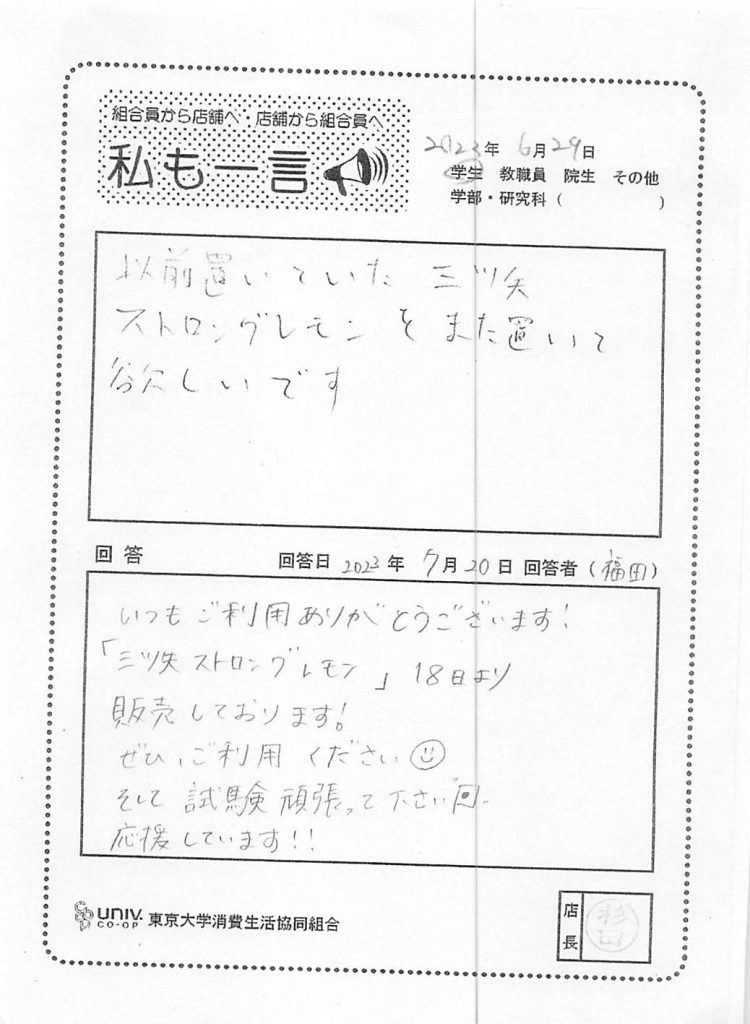 組合員から店舗へ・店舗から組合員へ
私も一言
2023年 6月29日
学生 教職員 院生 その他
学部・研究科 ( )
以前置いていた 三ツ矢
ストロングレモン をまた置いて
欲しいです
回答 回答日 2023年 7月20日 回答者 (福田)
いつもご利用ありがとうございます!
「三ツ矢 ストロングレモン」 18日より
販売しております!
ぜひ、ご利用ください
そして 試験頑張って下さい
応援しています!!
UNIV. CO-OP 東京大学消費生活協同組合
店長
杉田